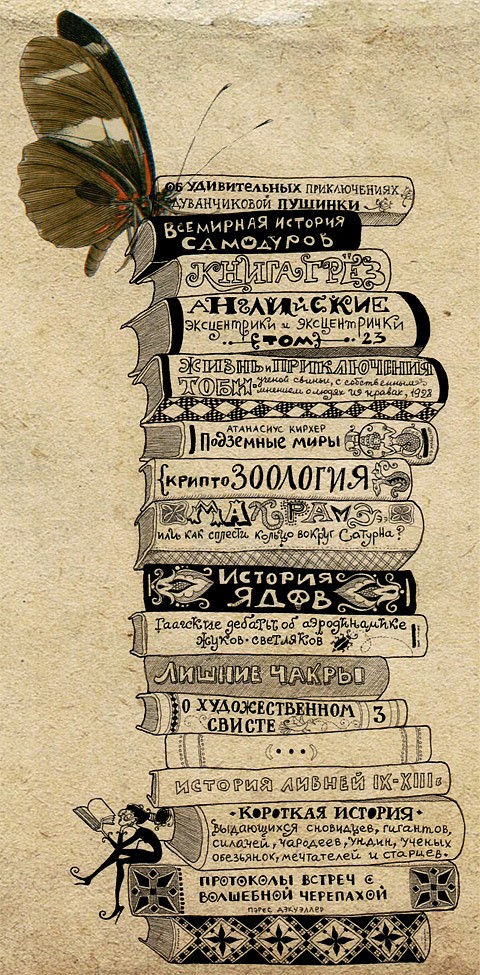 ОБ УДИВИТЕЛЬНЫХ ПРИКЛЮЧЕНИЯХ
ОДУВАНЧИКОВОЙ ПУШИНКИ
ВСЕМИРНАЯ ИСТОРИЯ
САМОДУРОВ
КНИГА ГРЁЗ
АНГЛИЙСКИЕ
ЭКСЦЕНТРИКИ и ЭКСЦЕНТРИЧКИ
ТОМ 23
ЖИЗНЬ и ПРИКЛЮЧЕНИЯ
ТОБИ - ученой свиньи, с собственным
мнением о людях и их нравах, 1998
АТАНАСИУС КИРХЕР
ПОДЗЕМНЫЕ МИРЫ
КРИПТОЗООЛОГИЯ
МАКРАМЭ,
или, как сплести кольцо вокруг Сатурна?
ИСТОРИЯ
ЯДОВ
Гаагские дебаты об аэродинамике
жуков-светляков
ЛИШНИЕ ЧАКРЫ
О ХУДОЖЕСТВЕННОМ
СВИСТЕ 3
(•••)
ИСТОРИЯ ЛИВНЕЙ IX-XIII в
• КОРОТКАЯ ИСТОРИЯ •
ВЫДАЮЩИХСЯ СНОВИДЦЕВ, ГИГАНТОВ,
СИЛАЧЕЙ, ЧАРОДЕЕВ, УНДИН, УЧЕНЫХ
ОБЕЗЬЯНОК, МЕЧТАТЕЛЕЙ И СТАРЦЕВ.
ПРОТОКОЛЫ ВСТРЕЧ С
ВОЛШЕБНОЙ ЧЕРЕПАХОЙ
ПЭРЕС ДЭКУЭЛЛЕР